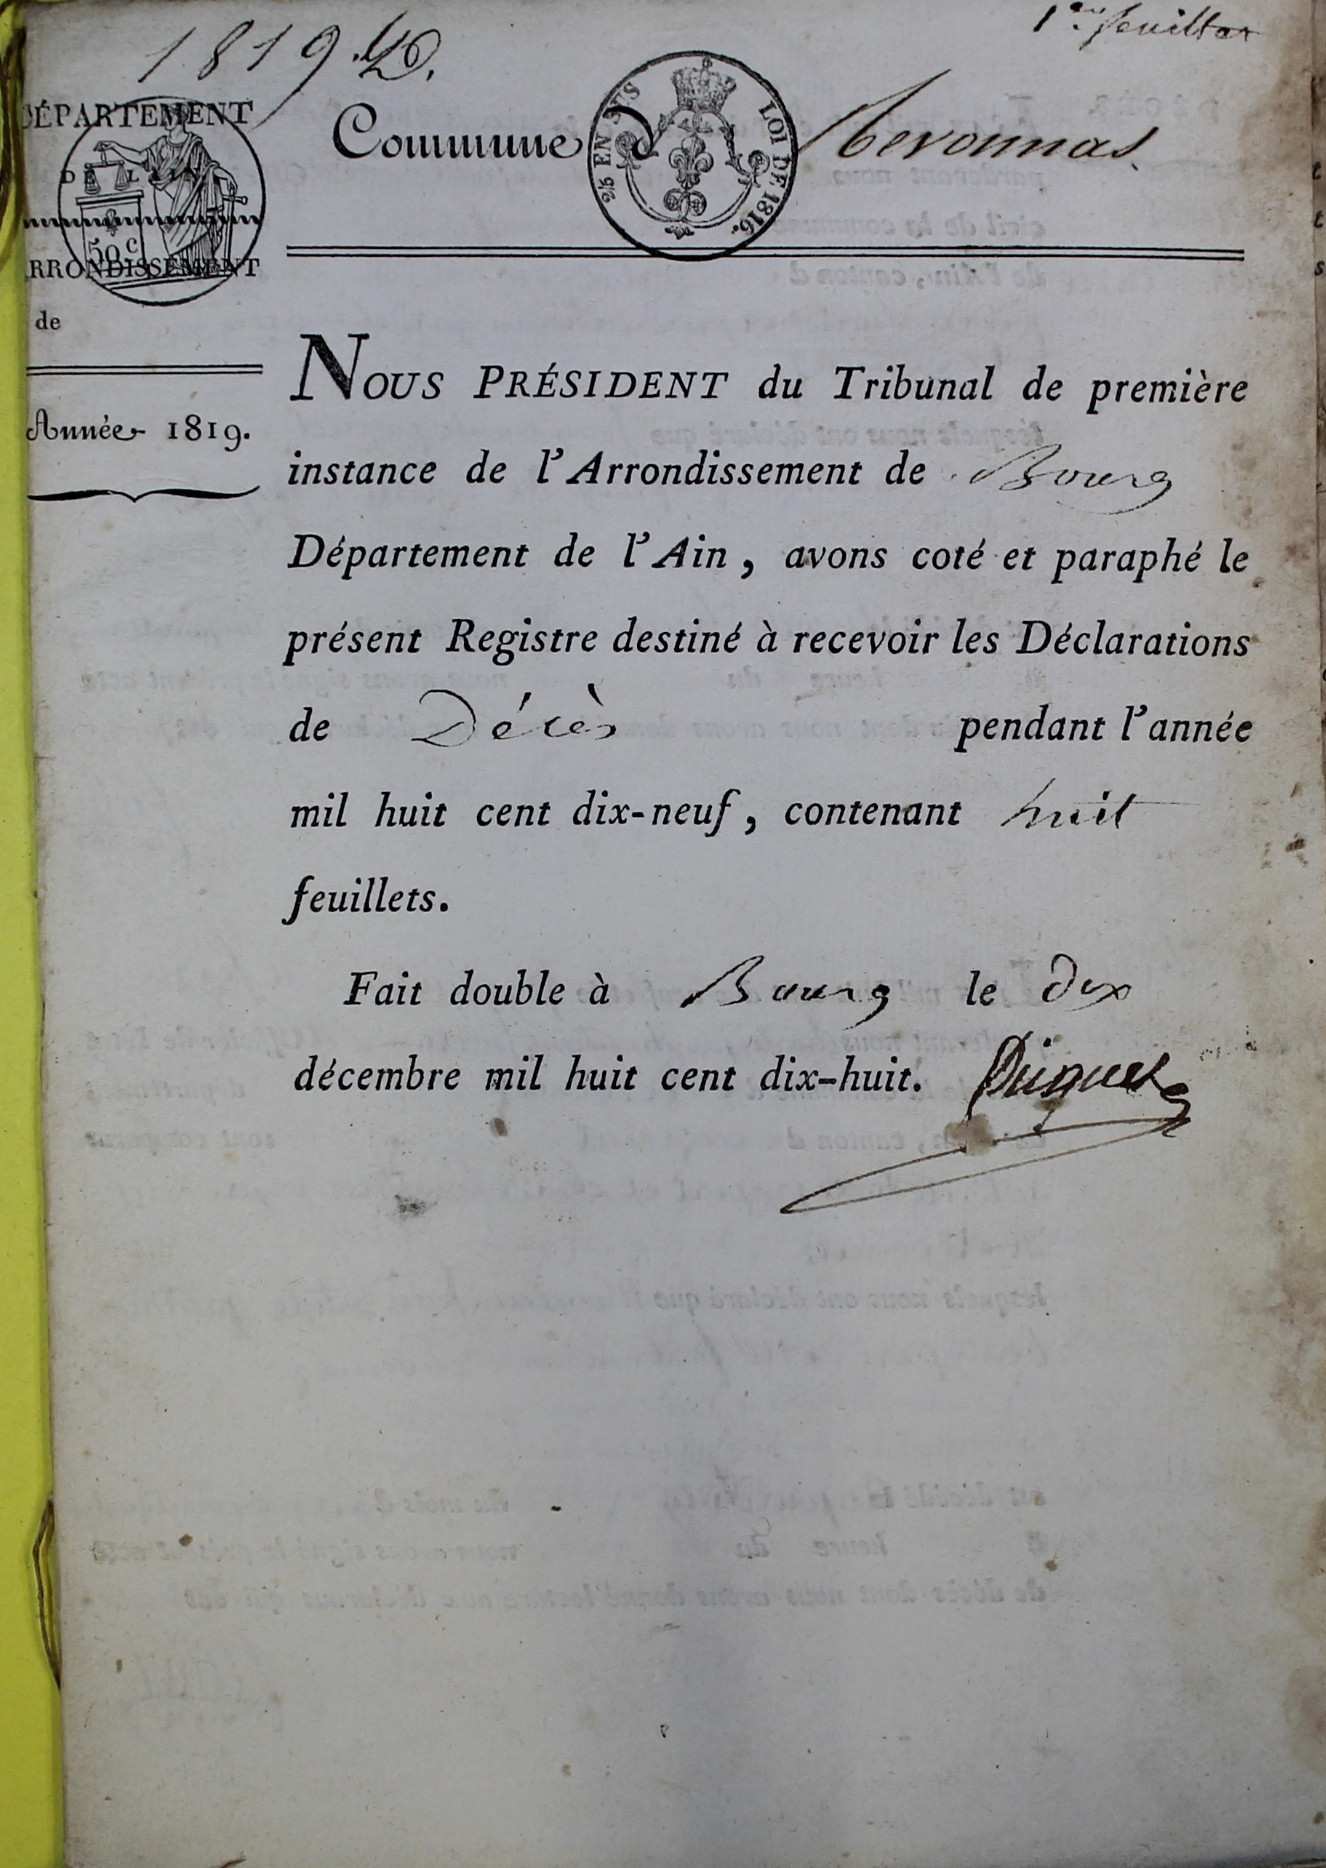 1819. D.
1er feuillet
DÉPARTEMENT
DE L'AIN
50 c
ARRONDISSEMENT
de
Année 1819.
Commune d
2/5 EN SUS
LOI DE 1816.
Meronnas
NOUS PRÉSIDENT du Tribunal de première
instance de l'Arrondissement de Bourg
Département de l'Ain, avons coté et paraphé le
présent Registre destiné à recevoir les Déclarations
de Décès pendant l'année
mil huit cent dix-neuf, contenant huit
feuillets.
Fait double à Bourg le dix
décembre mil huit cent dix-huit.